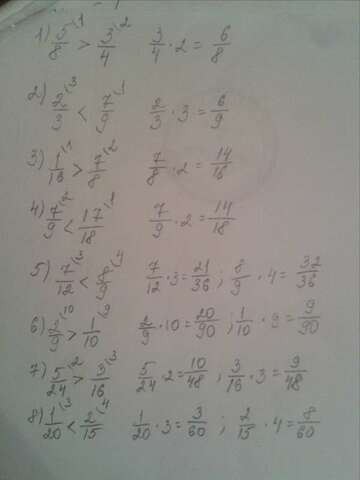 1) 5/8 \1 > 3/4 \2 3/4 · 2 = 6/8
2) 2/3 \3 < 7/9 \1 2/3 · 3 = 6/9
3) 11/16 \1 > 7/8 \2 7/8 · 2 = 14/16
4) 7/9 \2 < 17/18 \1 7/9 · 2 = 14/18
5) 7/12 \3 < 8/9 \4 7/12 · 3 = 21/36 ; 8/9 · 4 = 32/36
6) 2/9 \10 > 1/10 \9 2/9 · 10 = 20/90 ; 1/10 · 9 = 9/90
7) 5/24 \2 > 3/16 \3 5/24 · 2 = 10/48 ; 3/16 · 3 = 9/48
8) 1/20 \3 < 2/15 \4 1/20 · 3 = 3/60 ; 2/15 · 4 = 8/60